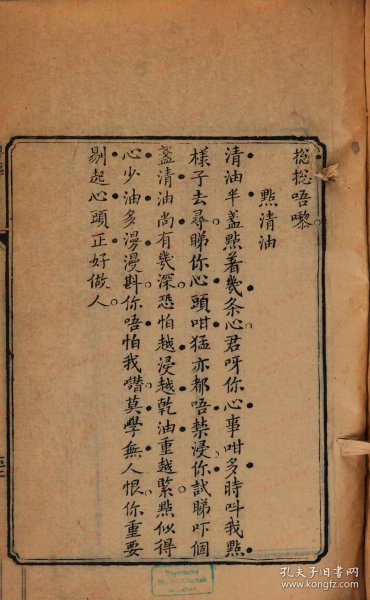 捴捴唔嚟
點清油
清油半盞點着幾条心君呀你心事咁多時呌我點
樣子去尋睇你心頭咁猛亦都唔禁浸你試睇吓個
盞清油尚有幾深恐怕越浸越乾油重越緊點似得
心少油多漫漫斟你唔怕我譖莫學無人恨你重要
剔起心頭正好做人
Bayerische
Staatsbibliothek
München
孔夫子旧书网